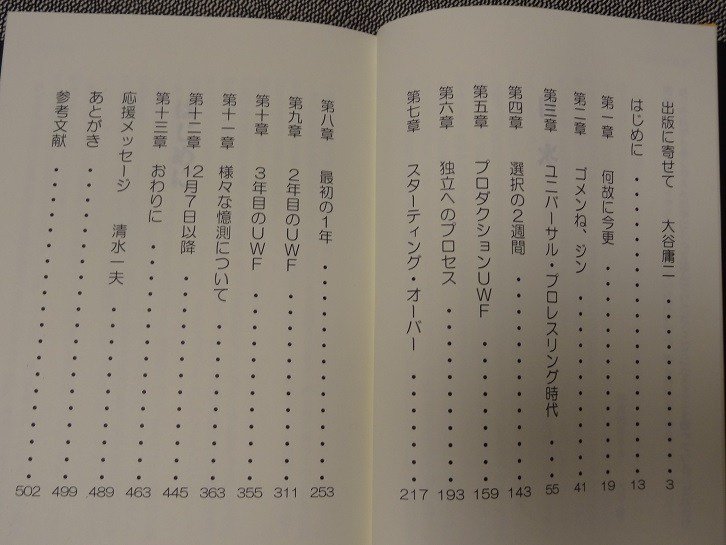 出版に寄せて　大谷庸二・・・・・・・・・・・3
はじめに・・・・・・・・・・・・・・・・・13
第一章　何故に今更・・・・・・・・・・・・19
第二章　ゴメンね、ジン・・・・・・・・・・41
第三章　ユニバーサル・プロレスリング時代・・・55
第四章　選択の2週間・・・・・・・・・・・143
第五章　プロダクションUWF・・・・・・・・159
第六章　独立へのプロセス・・・・・・・・・193
第七章　スターティング・オーバー・・・・・・217
第八章　最初の1年・・・・・・・・・・・・253
第九章　2年目のUWF・・・・・・・・・・・311
第十章　3年目のUWF・・・・・・・・・・・355
第十一章　様々な憶測について・・・・・・・・363
第十二章　12月7日以降・・・・・・・・・・445
第十三章　おわりに・・・・・・・・・・・・463
応援メッセージ　清水一夫・・・・・・・・・489
あとがき・・・・・・・・・・・・・・・・499
参考文献・・・・・・・・・・・・・・・・502